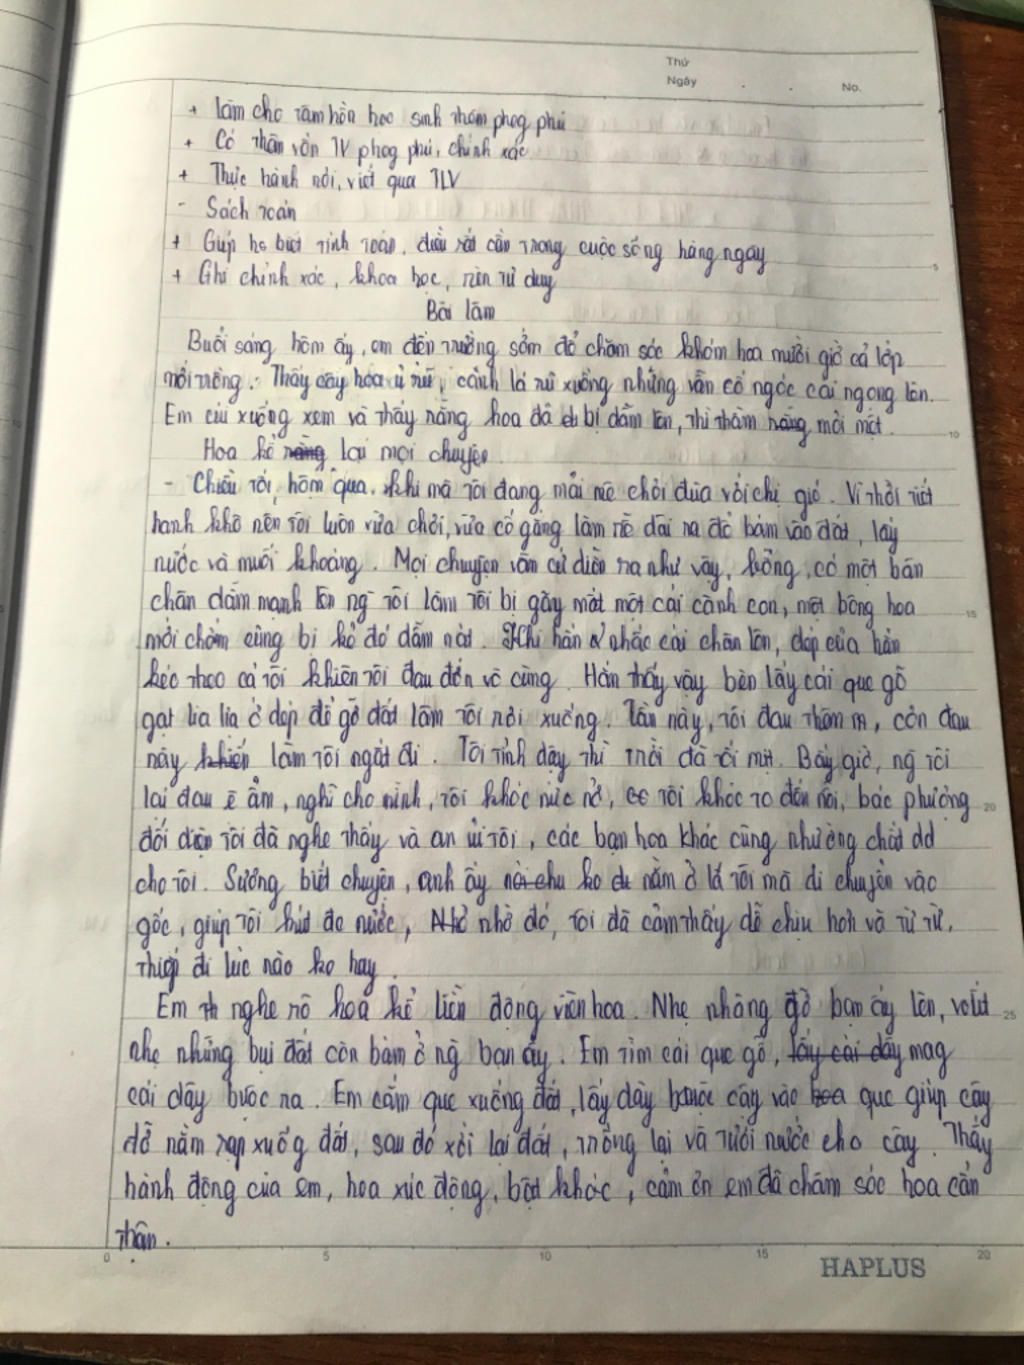 Thứ
Ngày . . No.
+ làm cho tâm hồn học sinh thêm phog phú
+ Có thêm vốn TV phog phú, chính xác
+ Thực hành nói, viết qua TLV
- Sách toán
+ Giúp hs biết tính toán, điều rất cần trong cuộc sống hàng ngày
+ Ghi chính xác, khoa học, rèn tư duy
Bài làm
Buổi sáng hôm ấy, em đến trường sớm để chăm sóc khóm hoa mười giờ cả lớp
mới trồng. Thấy cây hoa ủ rũ, cành lá rũ xuống nhưng vẫn cố ngóc cái ngọng lên.
Em cúi xuống xem và thấy rằng hoa đã bị dẫm lên, thì thầm rằng mỏi mệt.
Hoa kể rằng lại mọi chuyện.
- Chiều tối, hôm qua, khi mà tôi đang mải mê chơi đùa với chị gió. Vì thời tiết
hanh khô nên tôi luôn vừa chơi, vừa cố gắng làm rễ dài ra để bám vào đất, lấy
nước và muối khoáng. Mọi chuyện vẫn cứ diễn ra như vậy, bỗng, có một bàn
chân dẫm mạnh lên ng tôi làm tôi bị gãy mất một cái cành con, một bông hoa
mới chớm cũng bị kẻ đó dẫm nát. Khi hắn nhấc cái chân lên, dép của hắn
kéo theo cả tôi khiến tôi đau đớn vô cùng. Hắn thấy vậy bèn lấy cái que gỗ
gạt lia lịa ở dép để gỡ đất làm tôi rơi xuống. Lần này, tôi đau thêm, cơn đau
này khiến làm tôi ngất đi. Tôi tỉnh dậy thì trời đã tối mịt. Bây giờ, ng tôi
lại đau ê ẩm, nghĩ cho mình, tôi khóc nức nở, tôi khóc to đến nỗi, bác phượng
đối diện tôi đã nghe thấy và an ủi tôi, các bạn hoa khác cũng nhường chất dd
cho tôi. Sương biết chuyện, anh ấy ko nằm ở lá tôi mà di chuyển vào
gốc, giúp tôi hút đc nước, Nhờ nhờ đó, tôi đã cảm thấy dễ chịu hơn và từ từ,
thiếp đi lúc nào ko hay.
Em nghe rõ hoa kể liền động viên hoa. Nhẹ nhàng gỡ bạn ấy lên, vuốt
nhẹ những bụi đất còn bám ở ng bạn ấy. Em tìm cái que gỗ, lấy cái dây mag
cái dây buộc ra. Em cắm que xuống đất, lấy dây buộc cây vào hoa que giúp cây
đỡ nằm rạp xuốg đất, sau đó xới lại đất, trồng lại và tưới nước cho cây. Thấy
hành động của em, hoa xúc động, bật khóc, cảm ơn em đã chăm sóc hoa cẩn
thận.
5
10
15
20
25
0 5 10 15 20
HAPLUS